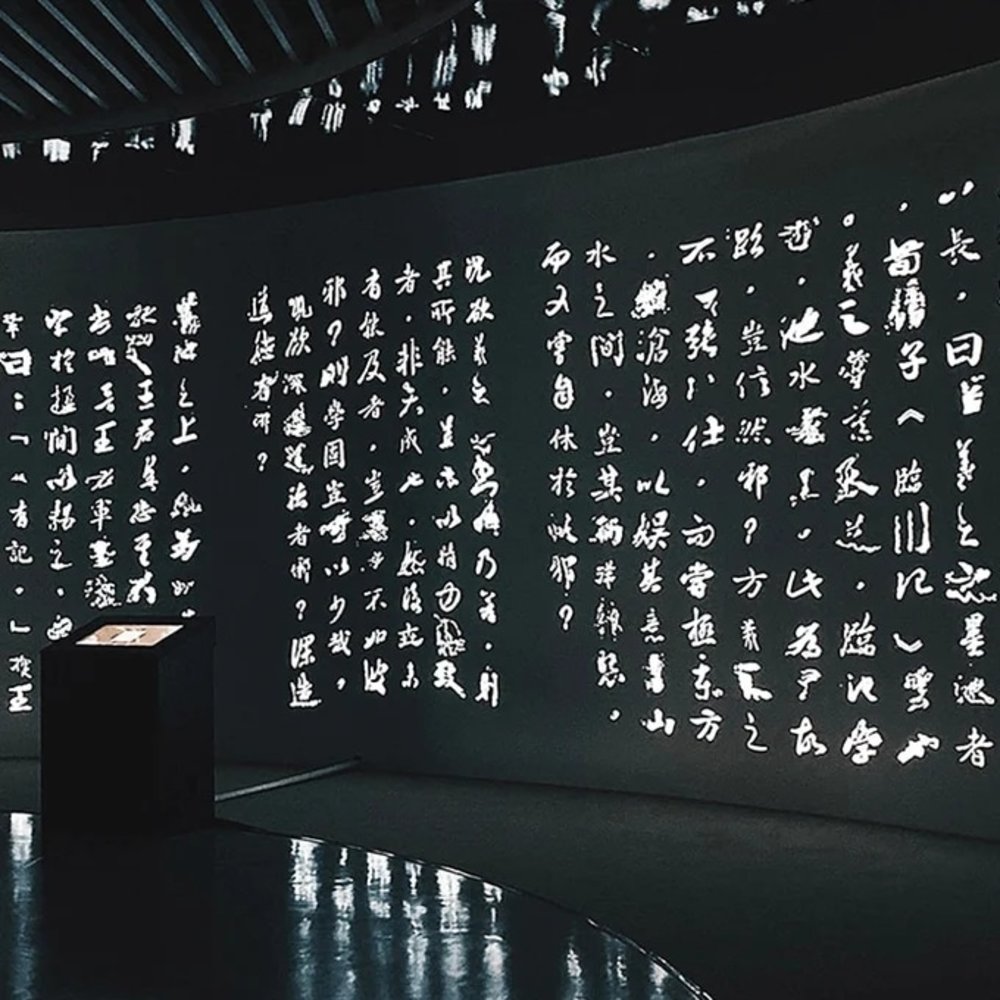 長，曰羲之之墨池者
，荀子《臨川記》雲也
。羲之嘗慕張芝，臨池學
，池水盡黑，此為故
跡，豈信然邪？方羲之之
不可強以仕，而嘗極東方
，滄海，以娛其意山
水之間，豈其徜徉肆恣，
而又嘗自休於此邪？
況欲羲之之書晚乃善，則
其所能，蓋亦以精力自致
者，非天成也。然後世未
有能及者，豈其學不如彼
邪？則學固豈可以少哉，
況欲深造道德者邪？深造
道德者邪？
墨池之上，為州
王君盛恐其不
書王右軍墨池
於楹間以揭之，
鞏曰：「有記。」推王